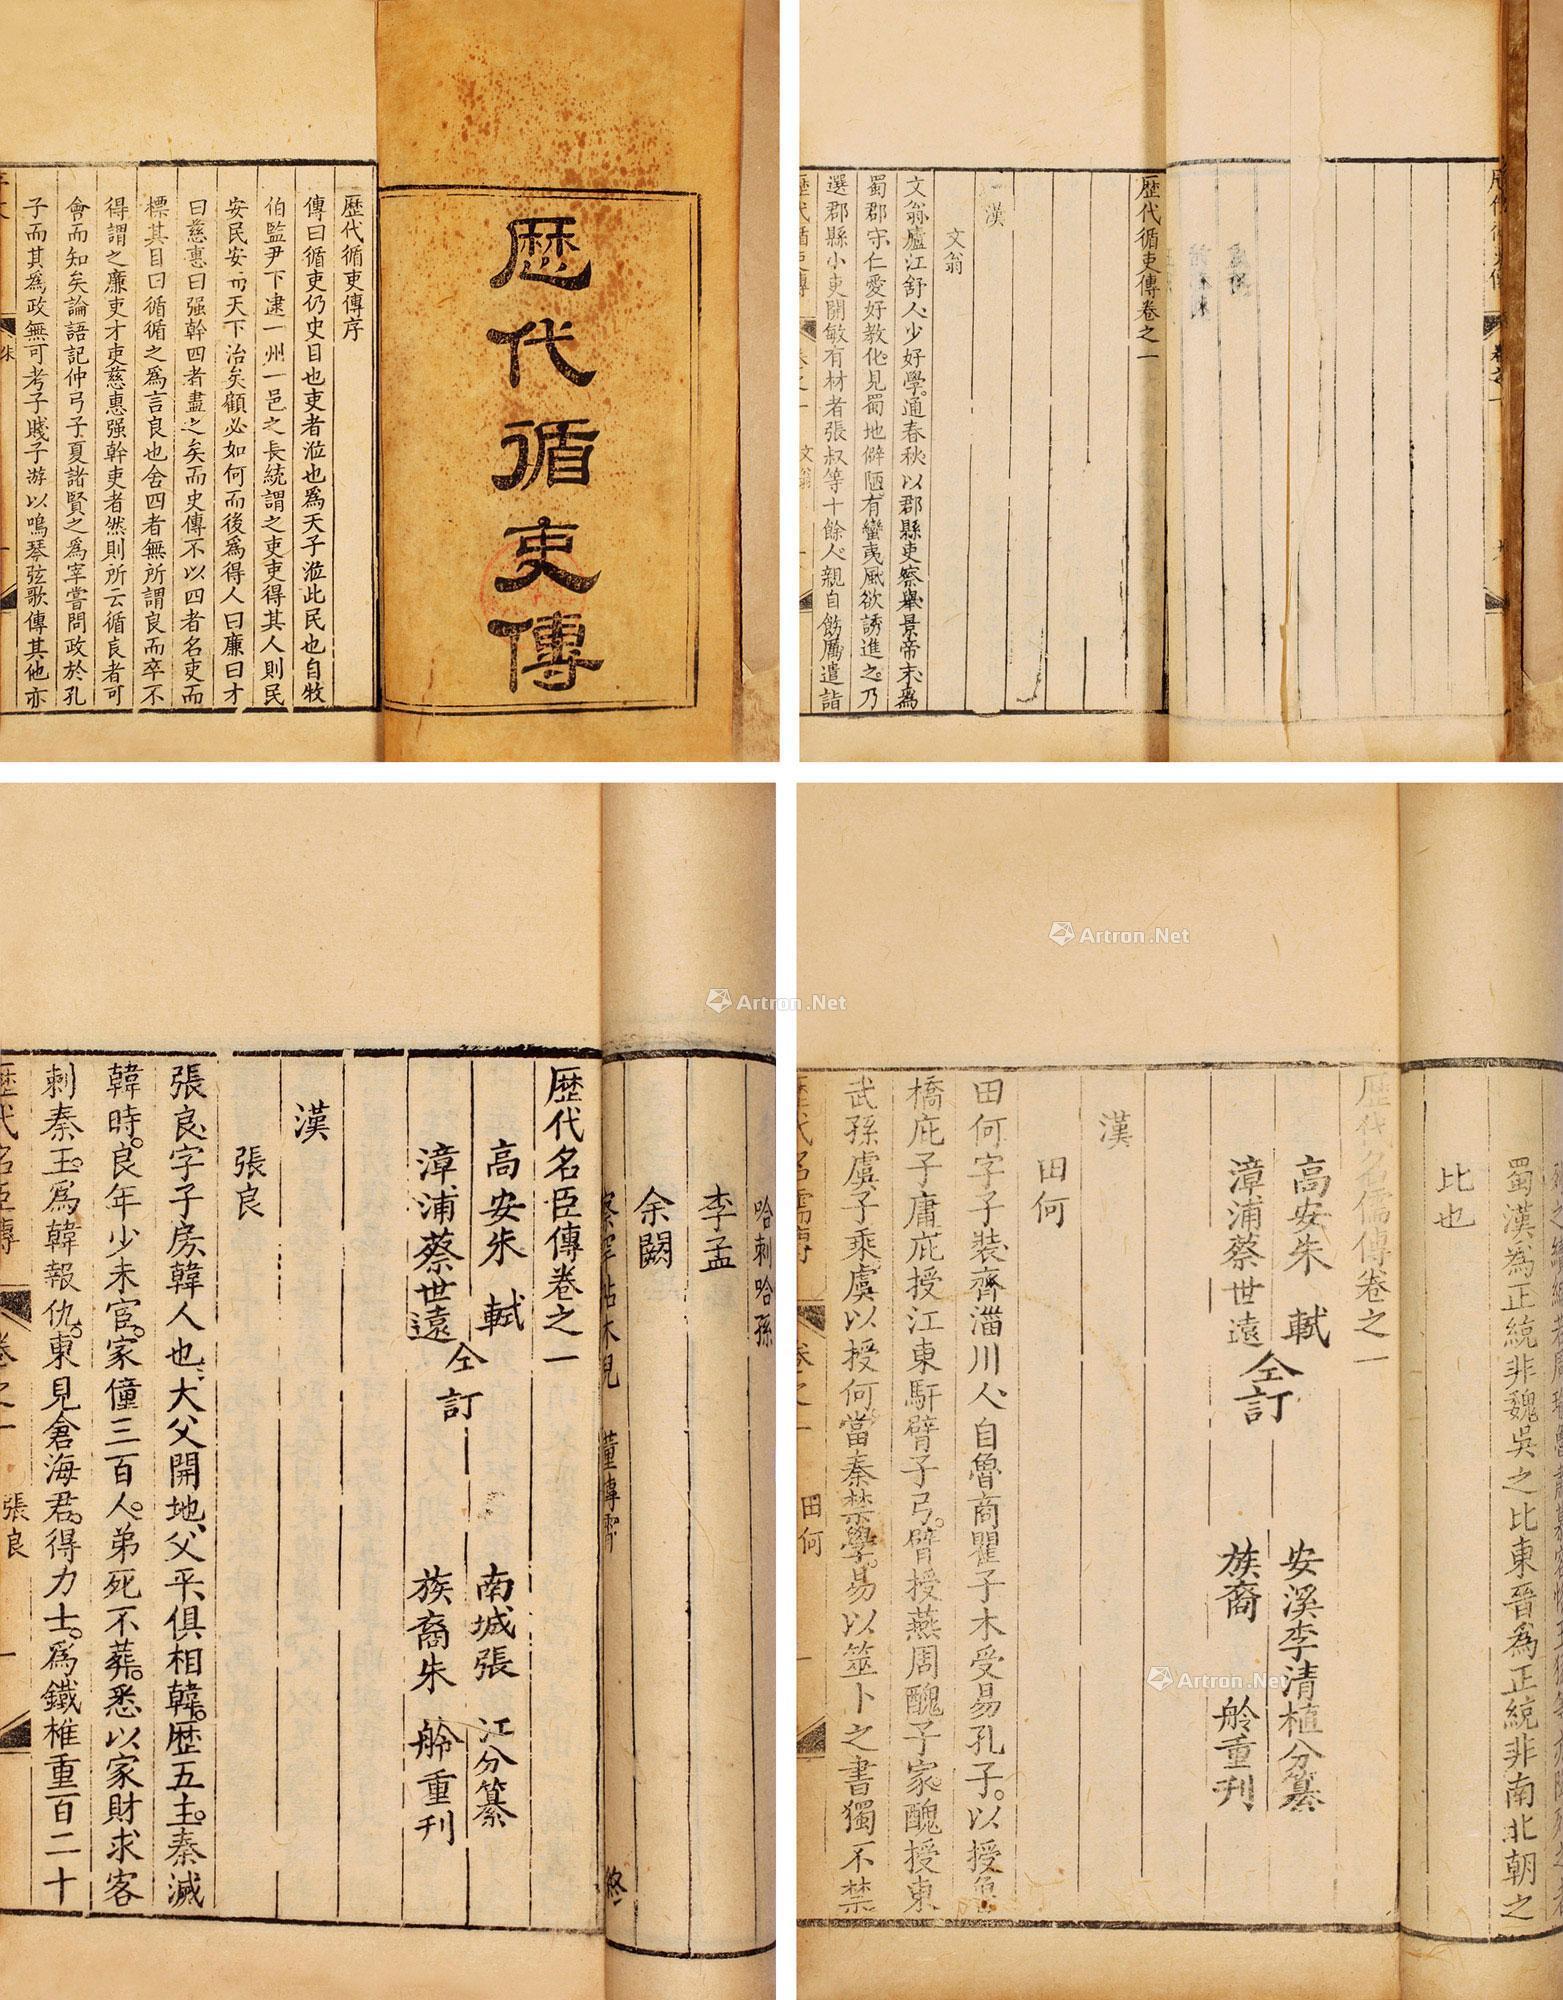 歷代循吏傳
歷代循吏傳序
傳曰循吏仍史目也吏者涖也爲天子涖此民也自牧
伯監尹下逮一州一邑之長統謂之吏吏得其人則民
安民安而天下治矣顧必如何而後爲得人曰廉曰才
曰慈惠曰强幹四者盡之矣而史傳不以四者名吏而
標其目曰循循之爲言良也舍四者無所謂良而卒不
得謂之廉吏才吏慈惠强幹吏者然則所云循良者可
會而知矣論語記仲弓子夏諸賢之爲宰嘗問政於孔
子而其爲政無可考子賤子游以鳴琴弦歌傳其他亦
朱
歷代循吏傳卷之一
漢
文翁
文翁廬江舒人少好學通春秋以郡縣吏察舉景帝末爲
蜀郡守仁愛好教化見蜀地僻陋有蠻夷風欲誘進之乃
選郡縣小吏開敏有材者張叔等十餘人親自飭厲遣詣
歷代循吏傳 卷之一 文翁 一
哈剌哈孫
李孟
余闕
歷代名臣傳卷之一
高安朱 軾
漳浦蔡世遠
仝訂
南城張 江分纂
族裔朱 舲重刊
漢
張良
張良字子房韓人也大父開地父平俱相韓歷五主秦滅
韓時良年少未宦家僮三百人弟死不葬悉以家財求客
刺秦王爲韓報仇東見倉海君得力士爲鐵椎重百二十
歷代名臣傳 卷之一 張良 一
蜀漢爲正統非魏吳之比東晉爲正統非南北朝之
比也
歷代名儒傳卷之一
高安朱 軾
漳浦蔡世遠
仝訂
安溪李清植分纂
族裔 舲重刊
漢
田何
田何字子裝齊淄川人自魯商瞿子木受易孔子以授魯
橋庇子庸庇授江東馯臂子弓臂授燕周醜子家醜授東
武孫虞子乘虞以授何當秦禁學易以筮卜之書獨不禁
歷代名儒傳 卷之一 田何 一
Artron.Net
Artron.Net
Artron.Net